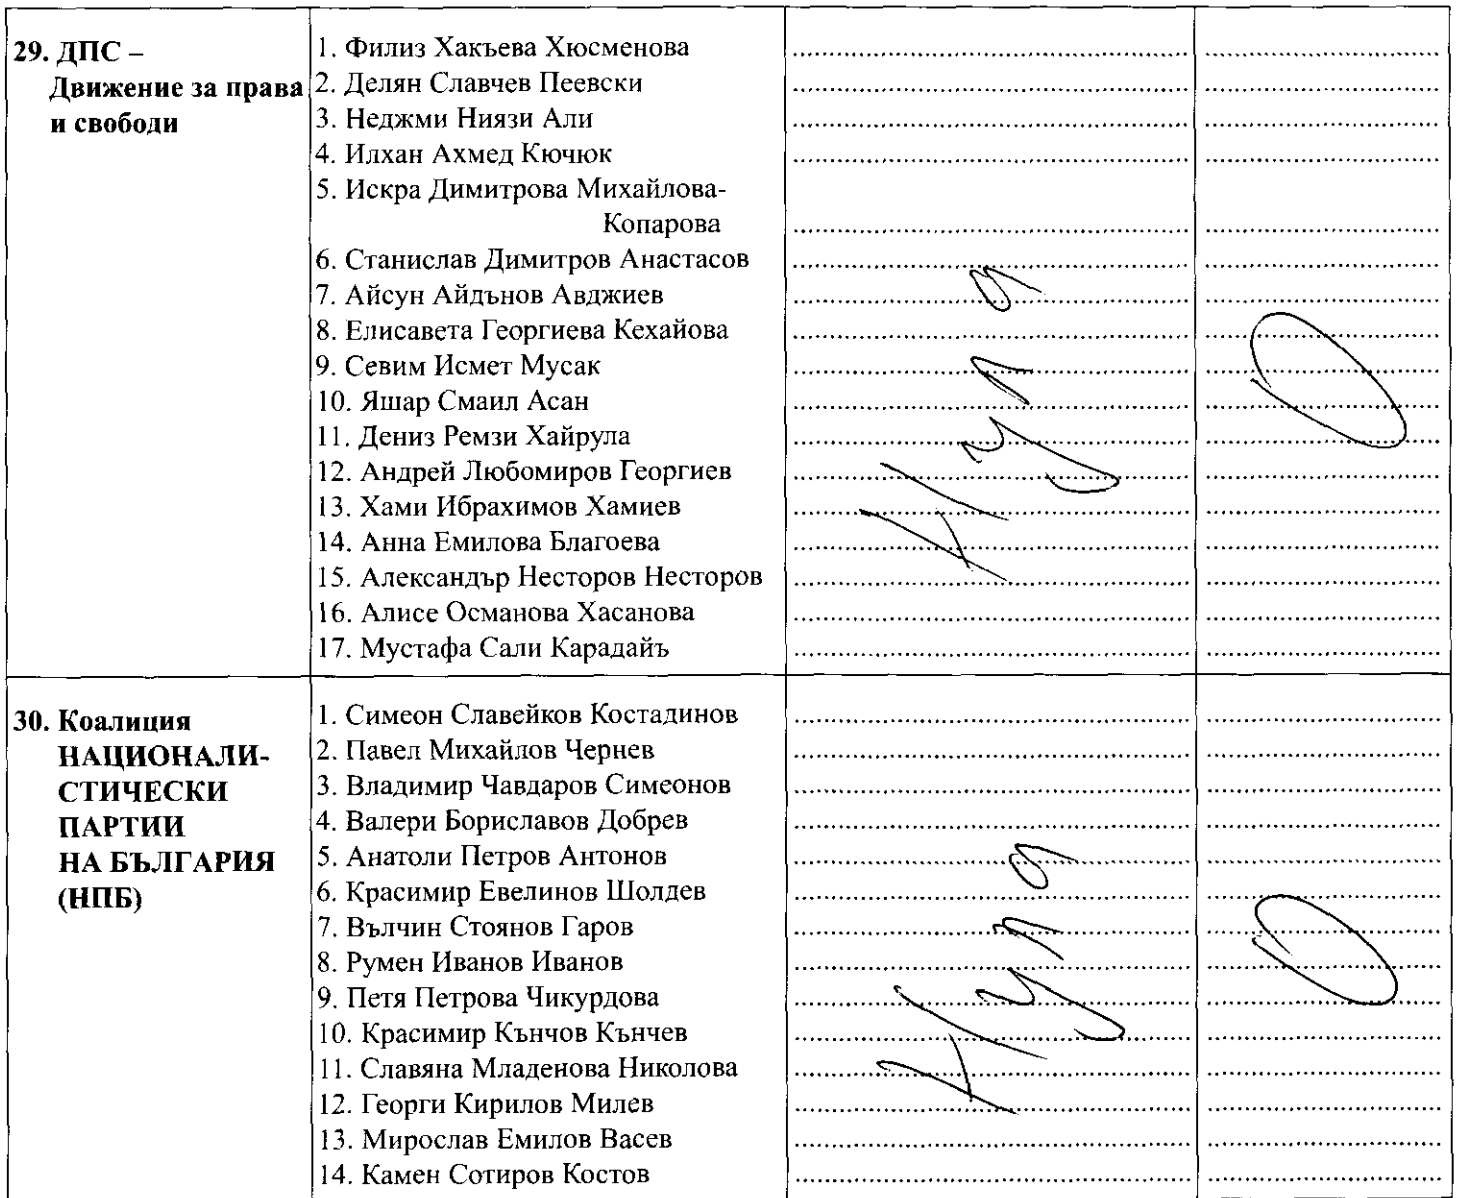 29. ДПС –
Движение за права
и свободи
1. Филиз Хакъева Хюсменова
2. Делян Славчев Пеевски
3. Неджми Ниязи Али
4. Илхан Ахмед Кючюк
5. Искра Димитрова Михайлова-
Копарова
6. Станислав Димитров Анастасов
7. Айсун Айдънов Авджиев
8. Елисавета Георгиева Кехайова
9. Севим Исмет Мусак
10. Яшар Смаил Асан
11. Дениз Ремзи Хайрула
12. Андрей Любомиров Георгиев
13. Хами Ибрахимов Хамиев
14. Анна Емилова Благоева
15. Александър Несторов Несторов
16. Алисе Османова Хасанова
17. Мустафа Сали Карадайъ
Нула
0
30. Коалиция
НАЦИОНАЛИ-
СТИЧЕСКИ
ПАРТИИ
НА БЪЛГАРИЯ
(НПБ)
1. Симеон Славейков Костадинов
2. Павел Михайлов Чернев
3. Владимир Чавдаров Симеонов
4. Валери Бориславов Добрев
5. Анатоли Петров Антонов
6. Красимир Евелинов Шолдев
7. Вълчин Стоянов Гаров
8. Румен Иванов Иванов
9. Петя Петрова Чикурдова
10. Красимир Кънчов Кънчев
11. Славяна Младенова Николова
12. Георги Кирилов Милев
13. Мирослав Емилов Васев
14. Камен Сотиров Костов
Нула
0